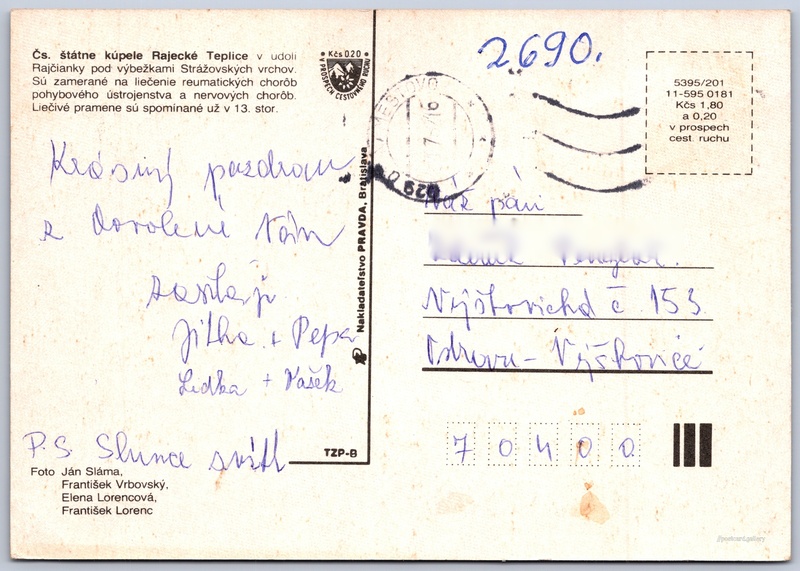 Čs. štátne kúpele Rajecké Teplice v udolí
Rajčianky pod výbežkami Strážovských vrchov.
Sú zamerané na liečenie reumatických chorôb
pohybového ústrojenstva a nervových chorôb.
Liečivé pramene sú spomínané už v 13. stor.
Kčs 0.20
A PROSPECH CESTOVNÉHO RUCHU
2690.
5395/201
11-595 0181
Kčs 1,80
a 0,20
v prospech
cest. ruchu
Krásný pozdrav
z dovolené Vám
zasílají
Jitka + Pepa
Lidka + Vašek
P.S. Slunce svítí
Nakladateľstvo PRAVDA, Bratislava
TZP-B
Foto Ján Sláma,
František Vrbovský,
Elena Lorencová,
František Lorenc
Váž paní
č 153
Ostrava - Výškovice
70400
//postcard.gallery